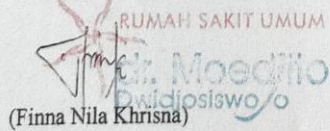 RUMAH SAKIT UMUM
dr. Moedjito
Dwidjosiswojo
(Finna Nila Khrisna)